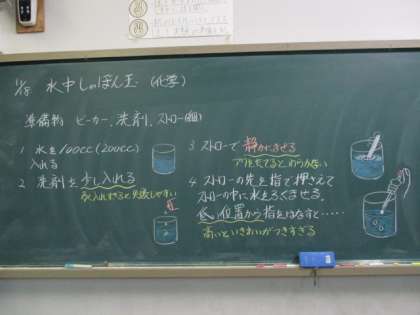 1/8 水中しゃぼん玉 (化学)
準備物 ビーカー、洗剤、ストロー(細)
1 水を100cc(200cc)
入れる
2 洗剤を少し入れる
多く入れすぎると失敗しやすい
3 ストローで静かにまぜる
アワたてるとわからない
4 ストローの先を指で押さえて
ストローの中に水をふくませる。
低い位置から指をはなすと……
高いといきおいがつきすぎる